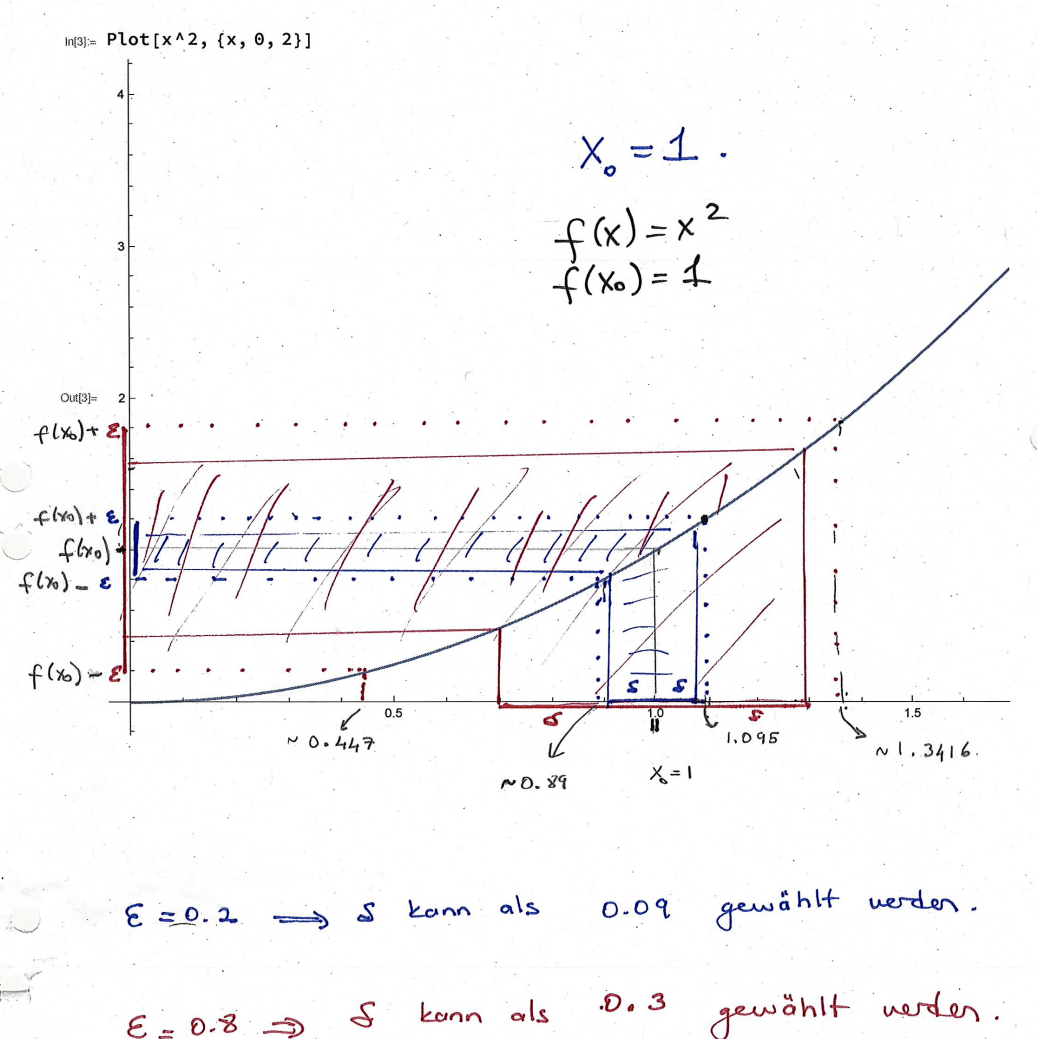 In[3]:= Plot[x^2, {x, 0, 2}]
4
x₀ = 1.
f(x) = x²
3
f(x₀) = 1
Out[3]= 2
f(x₀) + ε
f(x₀) + ε
f(x₀)
f(x₀) - ε
f(x₀) - ε
δ δ
0.5 δ 1.0 δ 1.5
~ 0.447 1.095 ~1.3416.
~0.89 x₀ = 1
ε = 0.2 ⟹ δ kann als 0.09 gewählt werden.
ε = 0.8 ⟹ δ kann als 0.3 gewählt werden.